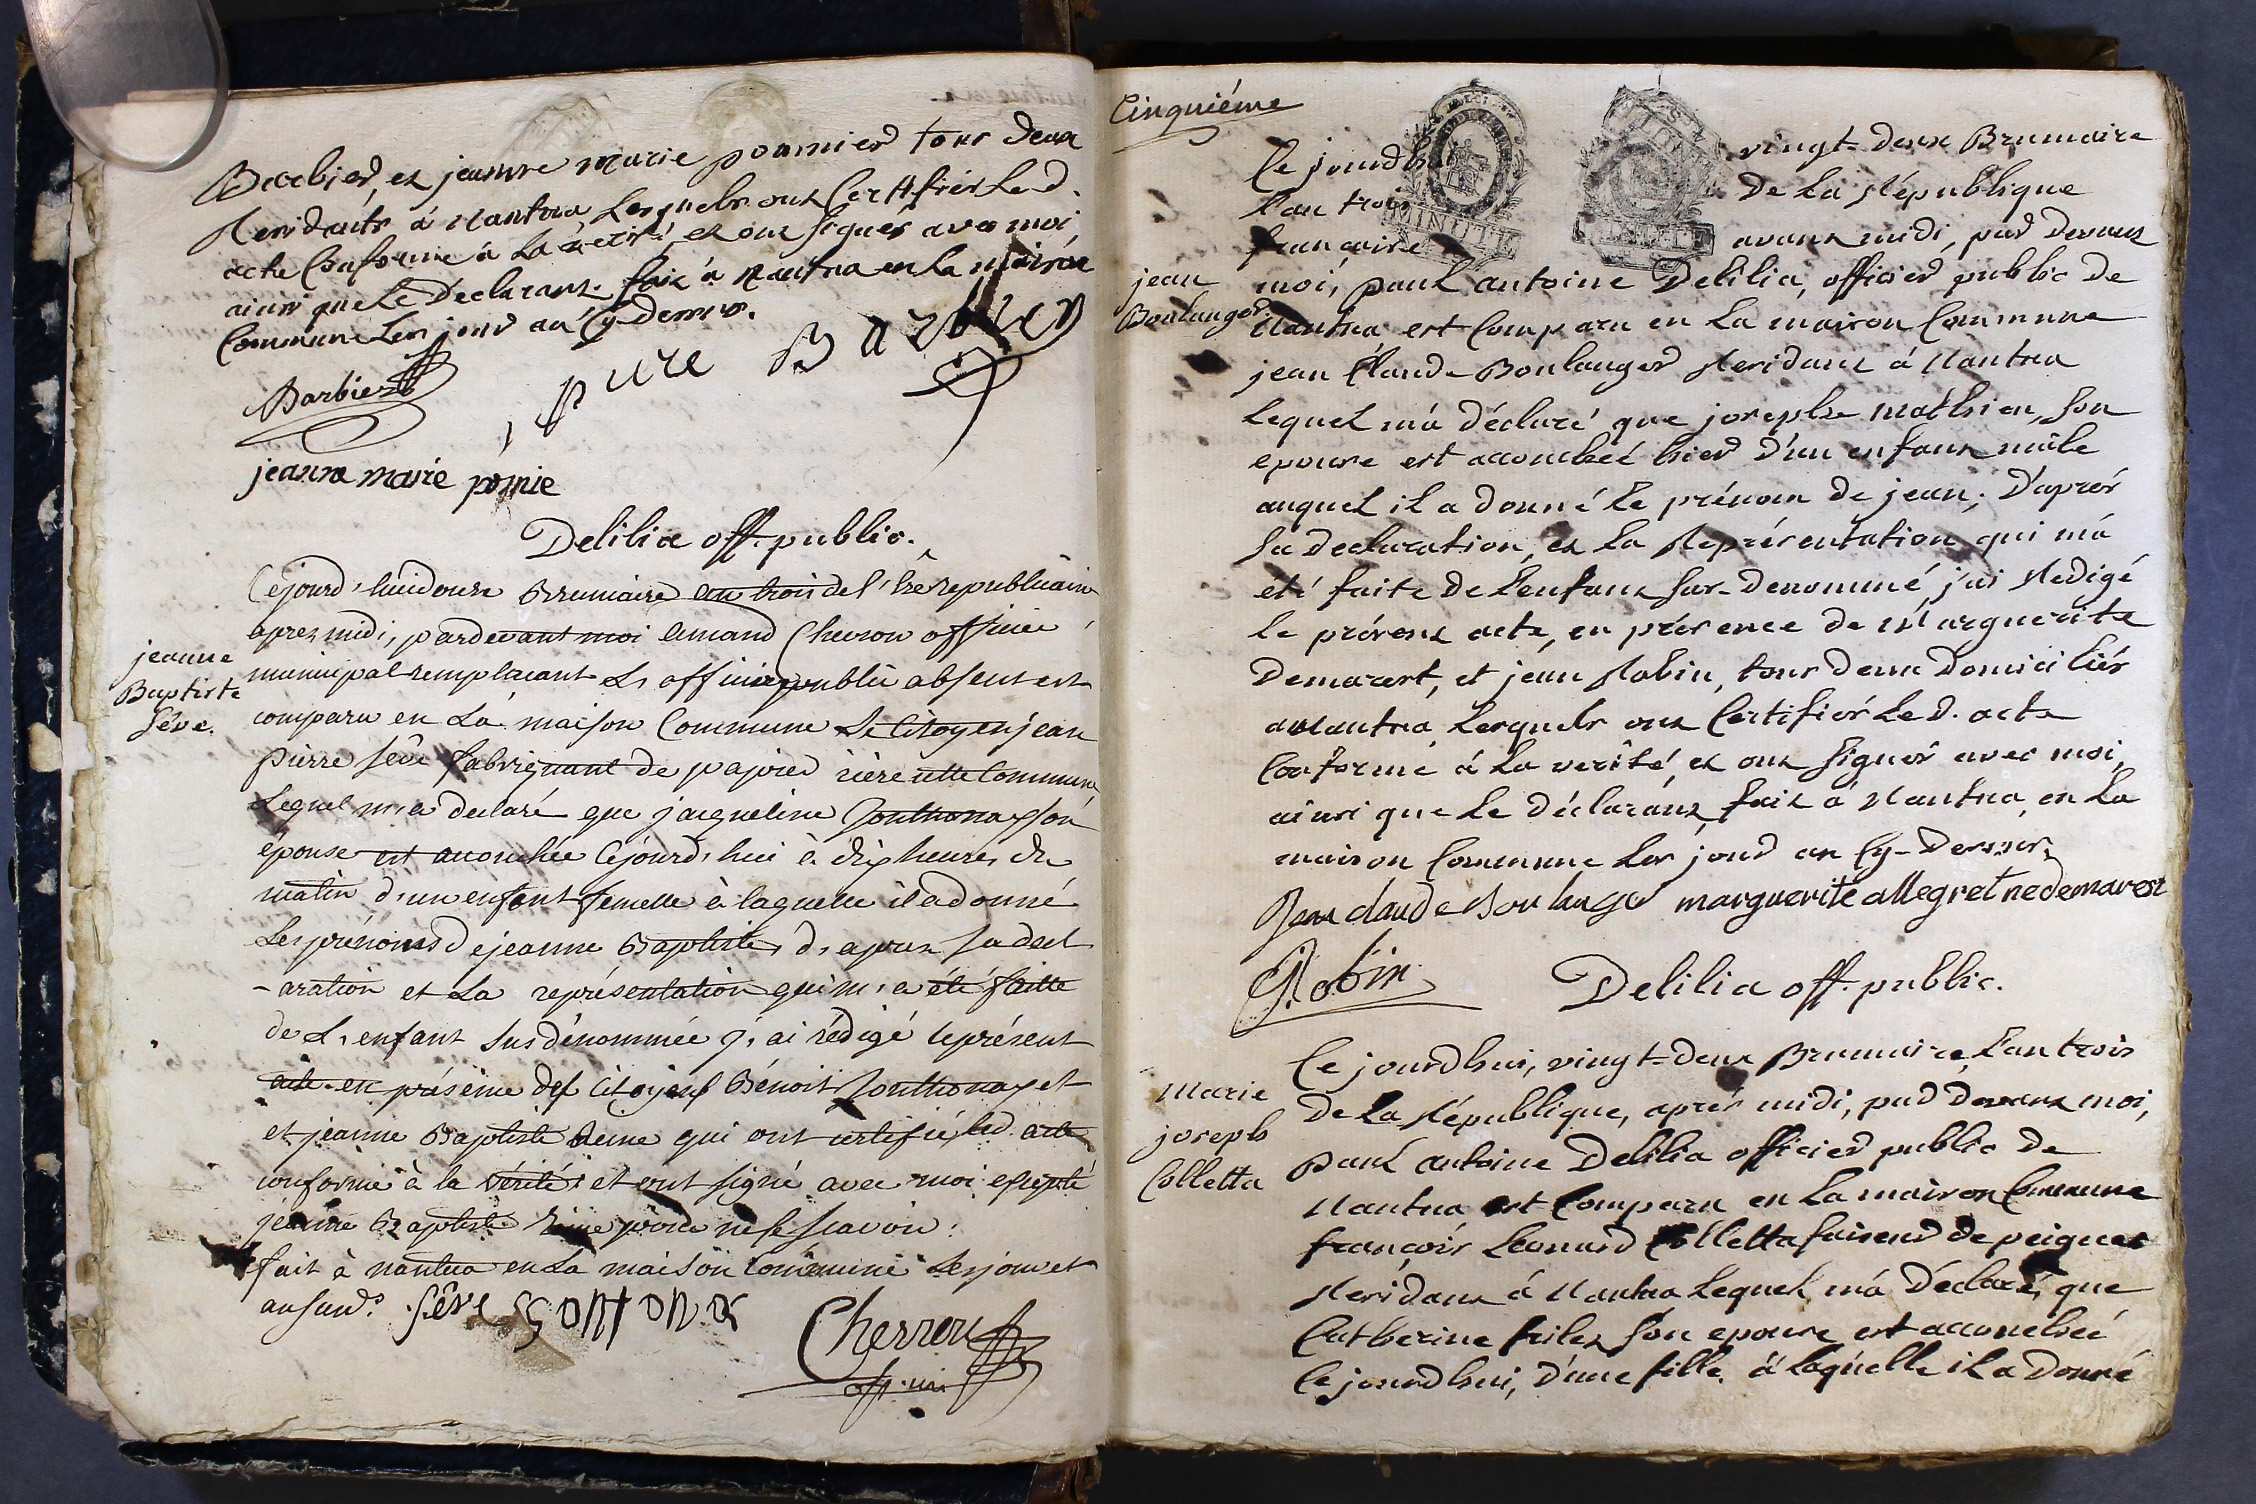 Barbier, et jeanne marie pomnier tous deux
Residants á Nantua Lesquels ont Certifiés Led.
acte Conforme á La verité, et ont signés avec moi
ainsi que Le Déclarant. fait á Nantua en La maison
Commune Les jour an Cy-Dessus.
Barbier
piere Barbier
jeanne marie pomie
Delilia off. public.
jeanne
Baptiste
séve.
Cejourd'hui douze Brumaire an trois de l'Ere republicaine
apres midi, pardevant moi amand Cherron officier
municipal remplacant L'officier public absent est
comparu en La maison Commune Le Citoyen jean
Pierre sève fabriquant de papier rière cette Commune
Lequel m'a declaré que jacqueline Sonthonax son
épouse est accouchée Cejourd'hui à dix heures du
matin d'un enfant femelle à laquelle il a donné
Les prénoms de jeanne Baptiste, d'apres sa decl
-aration et La représentation qui m'a été faitte
de L'enfant sus dénommée j'ai rédigé le présent
acte en présence des Citoyens Bénoit Sonthonax et
et jeanne Baptiste Reine qui ont certifié led. acte
conforme à la vérité; et ont signé avec moi excepté
jeanne Baptiste Reine pour ne le scavoir.
fait à nantua en La maison Commune Les jour et
an susd.s séve SontonaX
Cherron
off. m.
Cinquiéme
MINUTE
Ce jourd'hui vingt-deux Brumaire
L'an trois De La République
francaise avant midi, par Devant
jean
Boulanger
moi, paul antoine Delilia, officier public de
Nantua est Comparu en La maison Commune
jean Claude Boulanger Residant á Nantua
Lequel m'á Déclaré que josephe mathieu, son
epouse est accouchée hier D'un enfant mâle
auquel il a donné Le prénom de jean; D'aprés
sa declaration, et La Représentation qui m'á
eté faite de L'enfant sus-Denommé, j'ai Redigé
le présent acte, en présence de Marguerite
Demarest, et jean Robin, tous Deux Domiciliés
a Nantua, Lesquels ont Certifiés Le d. acte
Conforme á La verité, et ont signés avec moi,
ainsi que Le Déclarant, fait á Nantua, en La
maison Commune Les jour an Cy-Dessus.
Jean claude Boulanger marguerite allegret nedemarest
J. Robin
Delilia off. public.
Marie
joseph
Colletta
Ce jourdhui, vingt-deux Brumaire, L'an trois
De La République, aprés midi, par Devant moi,
paul antoine Delilia officier public de
Nantua est Comparu en La maison Commune
francois Léonard Colletta faiseur de peignes
Residant á Nantua Lequel m'á Déclaré, que
Catherine son epouse est accouchée
Ce jourdhui, D'une fille á Laquelle il a Donné